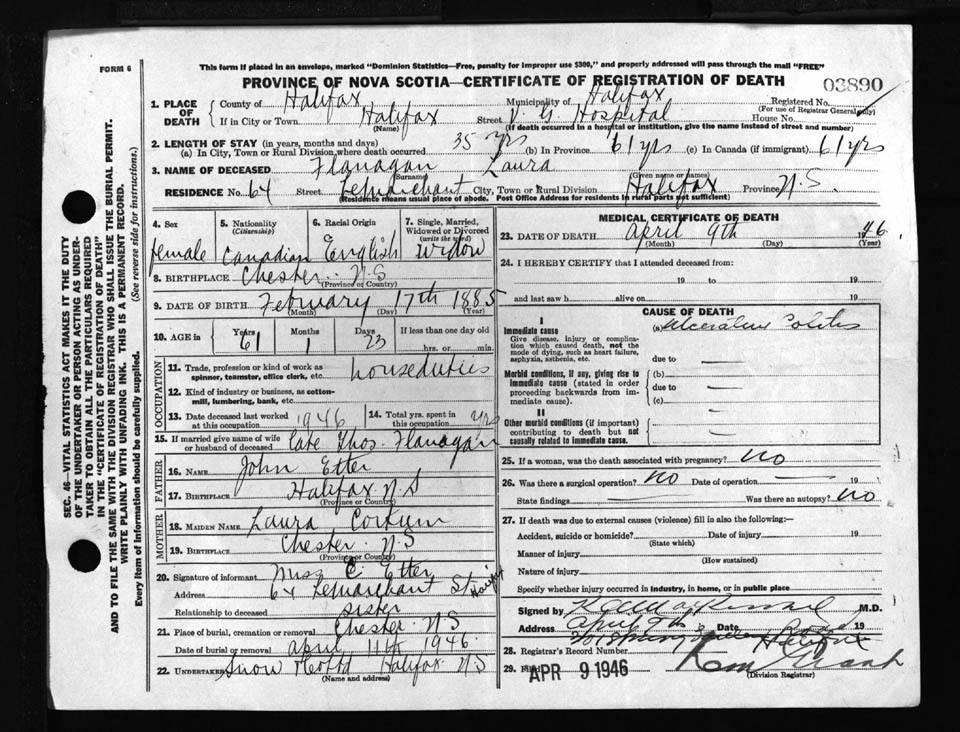 FORM 6
This form if placed in an envelope, marked "Dominion Statistics—Free, penalty for improper use $300," and properly addressed will pass through the mail "FREE"
PROVINCE OF NOVA SCOTIA—CERTIFICATE OF REGISTRATION OF DEATH
03890
1. PLACE OF DEATH County of Halifax Municipality of Halifax Registered No.
(For use of Registrar General only)
If in City or Town Halifax Street V. G. Hospital House No.
(Name) (If death occurred in a hospital or institution, give the name instead of street and number)
2. LENGTH OF STAY (in years, months and days)
(a) In City, Town or Rural Division where death occurred 35 yrs (b) In Province 61 yrs (c) In Canada (if immigrant) 61 yrs
3. NAME OF DECEASED Flanagan Laura
(Surname) (Given name or names)
RESIDENCE No. 64 Street Lemarchant City, Town or Rural Division Halifax Province N.S.
(Residence means usual place of abode. Post Office Address for residents in rural parts not sufficient)
4. Sex female
5. Nationality (Citizenship) Canadian
6. Racial Origin English
7. Single, Married, Widowed or Divorced (write the word) Widow
8. BIRTHPLACE Chester N.S
(Province or Country)
9. DATE OF BIRTH February 17th 1885
(Month) (Day) (Year)
10. AGE in Years 61 Months 1 Days 23 If less than one day old hrs. or min.
OCCUPATION
11. Trade, profession or kind of work as spinner, teamster, office clerk, etc. houseduties
12. Kind of industry or business, as cotton-mill, lumbering, bank, etc.
13. Date deceased last worked at this occupation 1946
14. Total yrs. spent in this occupation yrs
15. If married give name of wife or husband of deceased late Thos. Flanagan
FATHER
16. NAME John Etter
17. BIRTHPLACE Halifax N S
(Province or Country)
MOTHER
18. MAIDEN NAME Laura Corkum
19. BIRTHPLACE Chester N.S
(Province or Country)
20. Signature of informant Miss C. Etter
Address 64 Lemarchant St Halifax
Relationship to deceased sister
21. Place of burial, cremation or removal Chester N.S
Date of burial or removal april 11th 1946
22. UNDERTAKER Snow Halifax N S
(Name and address)
MEDICAL CERTIFICATE OF DEATH
23. DATE OF DEATH April 9th 1946.
(Month) (Day) (Year)
24. I HEREBY CERTIFY that I attended deceased from:
19 to 19
and last saw h alive on 19
CAUSE OF DEATH
I
Immediate cause
Give disease, injury or complication which caused death, not the mode of dying, such as heart failure, asphyxia, asthenia, etc.
(a) Ulcerative Colitis
due to
Morbid conditions, if any, giving rise to immediate cause (stated in order proceeding backwards from immediate cause).
(b)
due to
(c)
II
Other morbid conditions (if important) contributing to death but not causally related to immediate cause.
25. If a woman, was the death associated with pregnancy? NO
26. Was there a surgical operation? NO Date of operation 19
State findings Was there an autopsy? NO
27. If death was due to external causes (violence) fill in also the following:—
Accident, suicide or homicide? Date of injury 19
(State which)
Manner of injury
(How sustained)
Nature of injury
Specify whether injury occurred in industry, in home, or in public place
Signed by M.D.
Address April 9th Date 19
28. Registrar's Record Number
29. APR 9 1946
(Division Registrar)
SEC. 46—VITAL STATISTICS ACT MAKES IT THE DUTY
OF THE UNDERTAKER OR PERSON ACTING AS UNDER-
TAKER TO OBTAIN ALL THE PARTICULARS REQUIRED
IN THE "CERTIFICATE OF REGISTRATION OF DEATH"
AND TO FILE THE SAME WITH THE DIVISION REGISTRAR WHO SHALL ISSUE THE BURIAL PERMIT.
WRITE PLAINLY WITH UNFADING INK. THIS IS A PERMANENT RECORD.
Every item of Information should be carefully supplied. (See reverse side for instructions.)